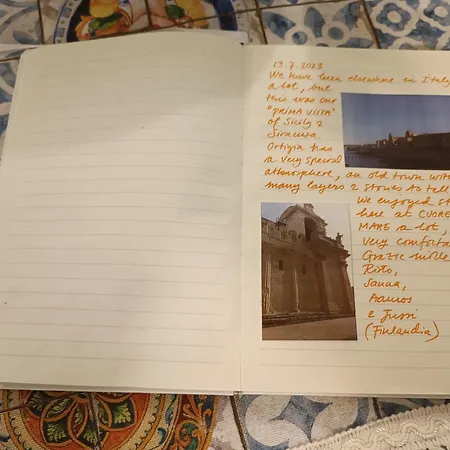 13.7.2023
We have been elsewhere in Italy
a lot, but
this was our
"PRIMA VISTA"
of Sicily &
Siracusa.
Ortigia has
a very special
atmosphere, an old town with
many layers & stories to tell
We enjoyed st
here at CUORE
MARE a lot,
very comforta
Grazie mille
Risto,
Sanna,
Aamos
& Jussi
(Finlandia)